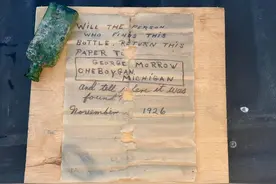 WILL THE PERSON
WHO FINDS THIS
BOTTLE RETURN THIS
PAPER TO
GEORGE MORROW
CHEBOYGAN
MICHIGAN
and tell where it was
found?
November 1926